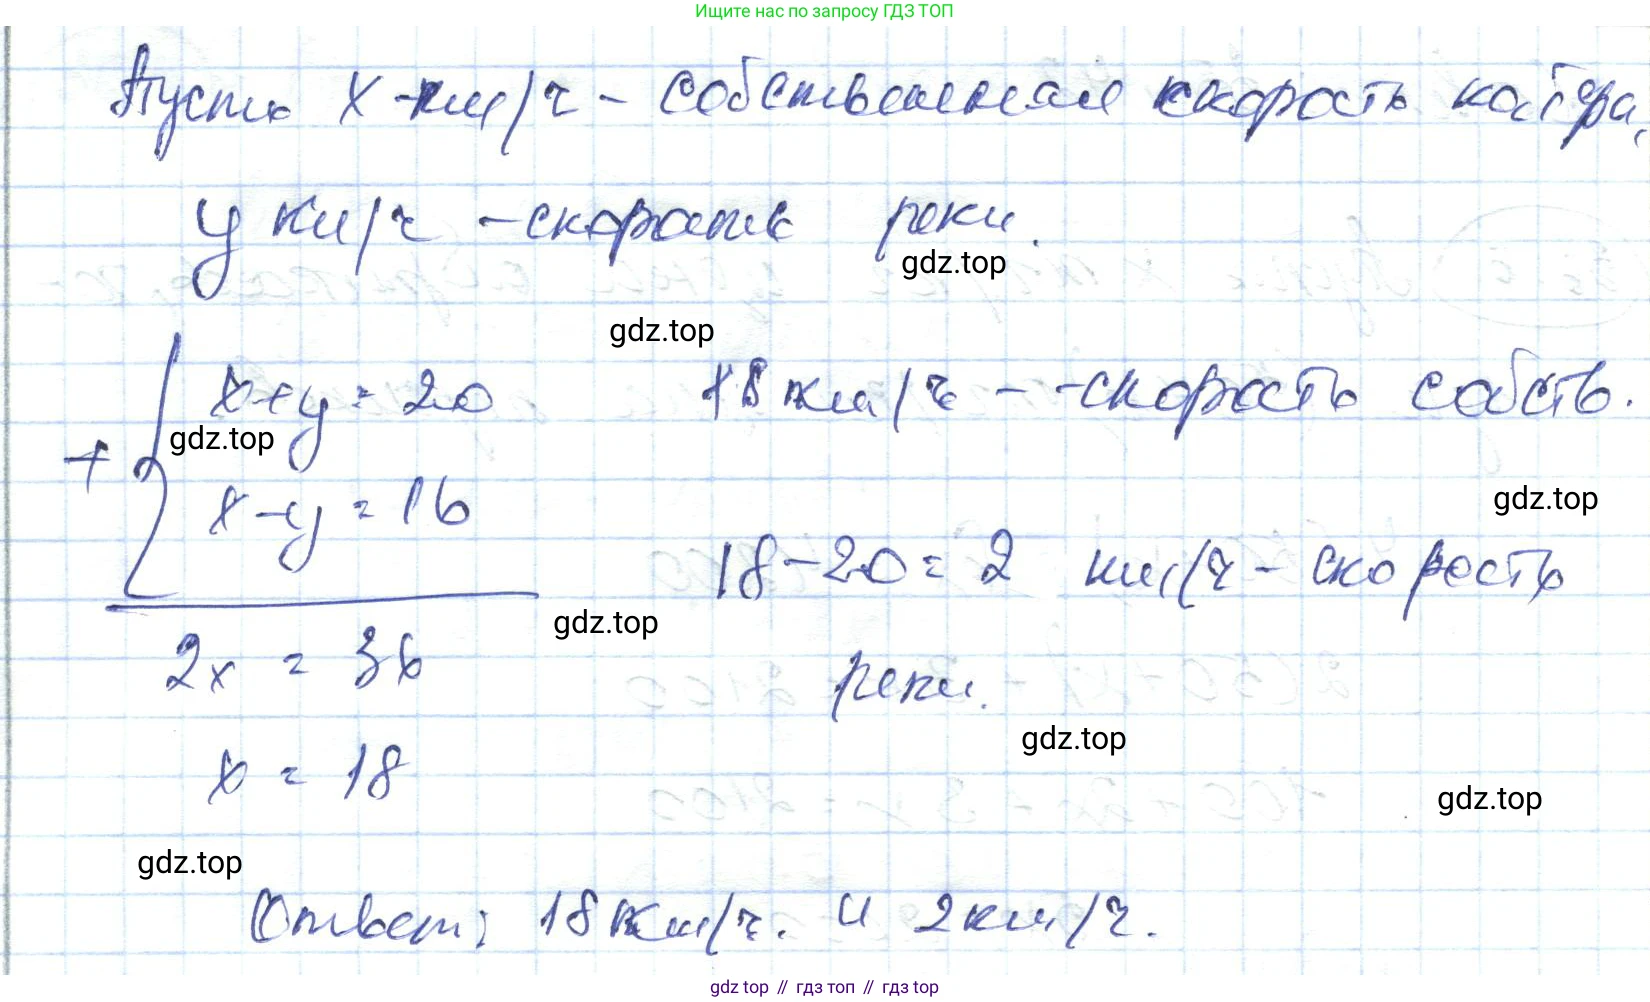 Ищите нас по запросу ГДЗ ТОП
Пусть x км/ч - собственная скорость катера,
y км/ч - скорость реки.
gdz.top
gdz.top
x+y=20
18 км/ч - скорость собств.
gdz.top
+
x-y=16
gdz.top
18-20=2 км/ч - скорость
gdz.top
2x = 36
реки.
gdz.top
x = 18
gdz.top
gdz.top
Ответ: 18 км/ч. и 2 км/ч.
gdz top // гдз топ // гдз top